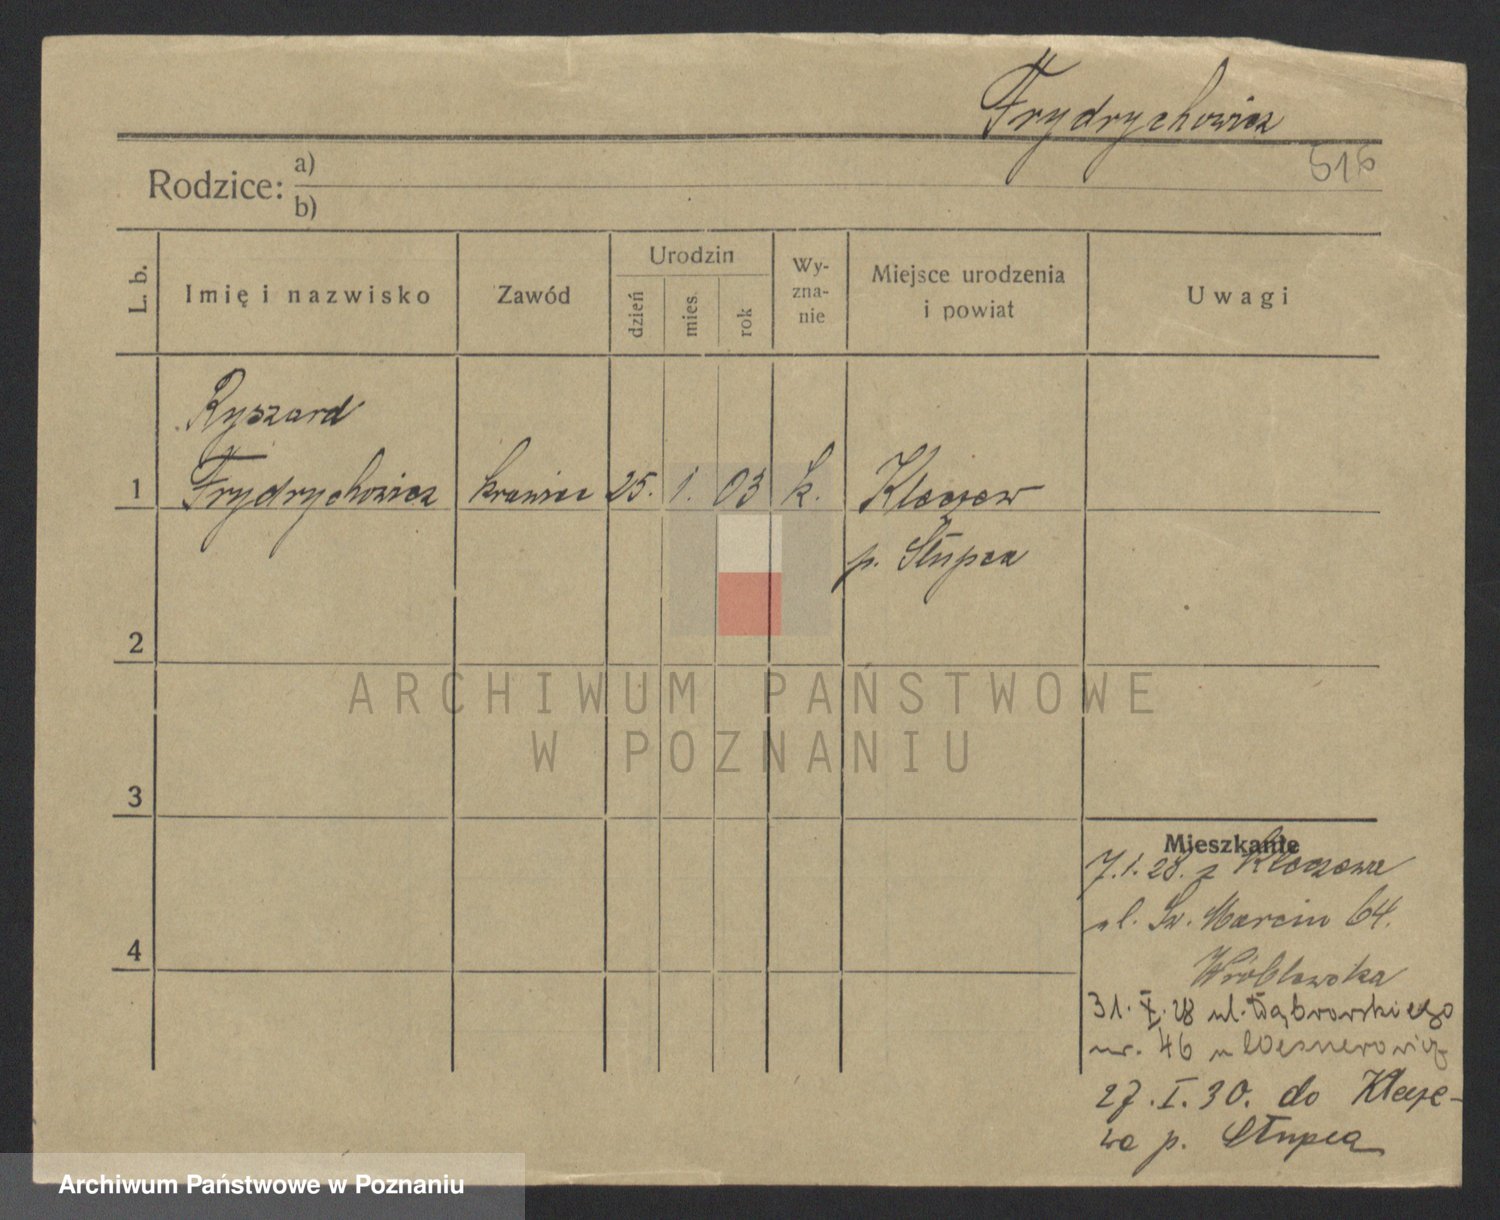 Frydrychowicz
516
Rodzice: a)
b)
L. b.
Imię i nazwisko
Zawód
Urodzin
dzień
mies.
rok
Wy-
zna-
nie
Miejsce urodzenia
i powiat
Uwagi
Ryszard
1 Frydrychowicz krawiec 25. 1. 03 k. Kleczew
p. Słupca
2
ARCHIWUM PAŃSTWOWE
W POZNANIU
3
Mieszkanie
7.1.28. z Kleczewa
ul. Św. Marcin 64.
4
Wróblewska
31. X. 28 ul. Dąbrowskiego
nr. 46 u
27. I. 30. do Klecze-
wa p. Słupca
Archiwum Państwowe w Poznaniu